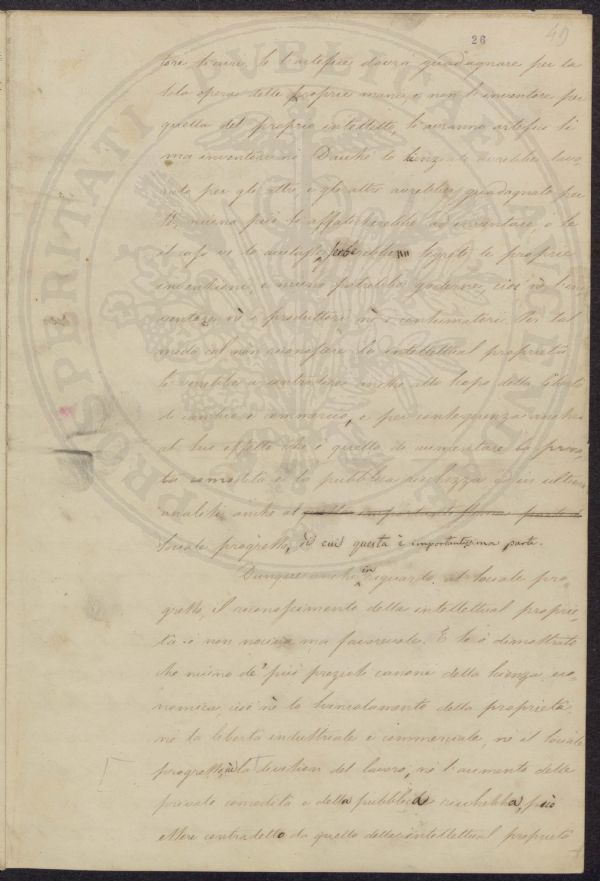 26
49
se l'artefice dovrà guadagnare per la
sola opera delle proprie mani, e non l'inventore per
quella del proprio intelletto, si avranno artefici sì
ma inventori no. Dacché lo avrebbe lavo-
rato per gli altri, e gli altri avrebbero guadagnato per
niuno più si affaticherebbe ad inventare, o se
il caso vi segreto le proprie
invenzioni, e niuno potrebbe goderne, cioè nè l'in-
ventore, nè i produttori nè i consumatori. Per tal
modo col non riconoscere la intellettual proprietà
si verrebbe a contradire anche allo scopo della libertà
di cambio e commercio, e per conseguenza anche
al suo effetto che è quello di aumentare la priva-
ta comodità e la pubblica ricchezza ed in ultima
analisi anche al
sociale progresso, di cui questa è importantissima parte.
Dunque anche in riguardo al sociale pro-
gresso, il riconoscimento della intellettual proprie-
tà è non nocivo ma favorevole. E si è dimostrato
che niuno de' più preziosi canoni della scienza eco-
nomica, cioè nè lo svincolamento della proprietà,
nè la libertà industriale e commerciale, nè il sociale
progresso, nè la division del lavoro, nè l'aumento delle
private comodità e della pubblica ricchezza, può
essere contradetto da quello della intellettual proprietà
PROSPERITATI PUBLICAE AUGENDAE